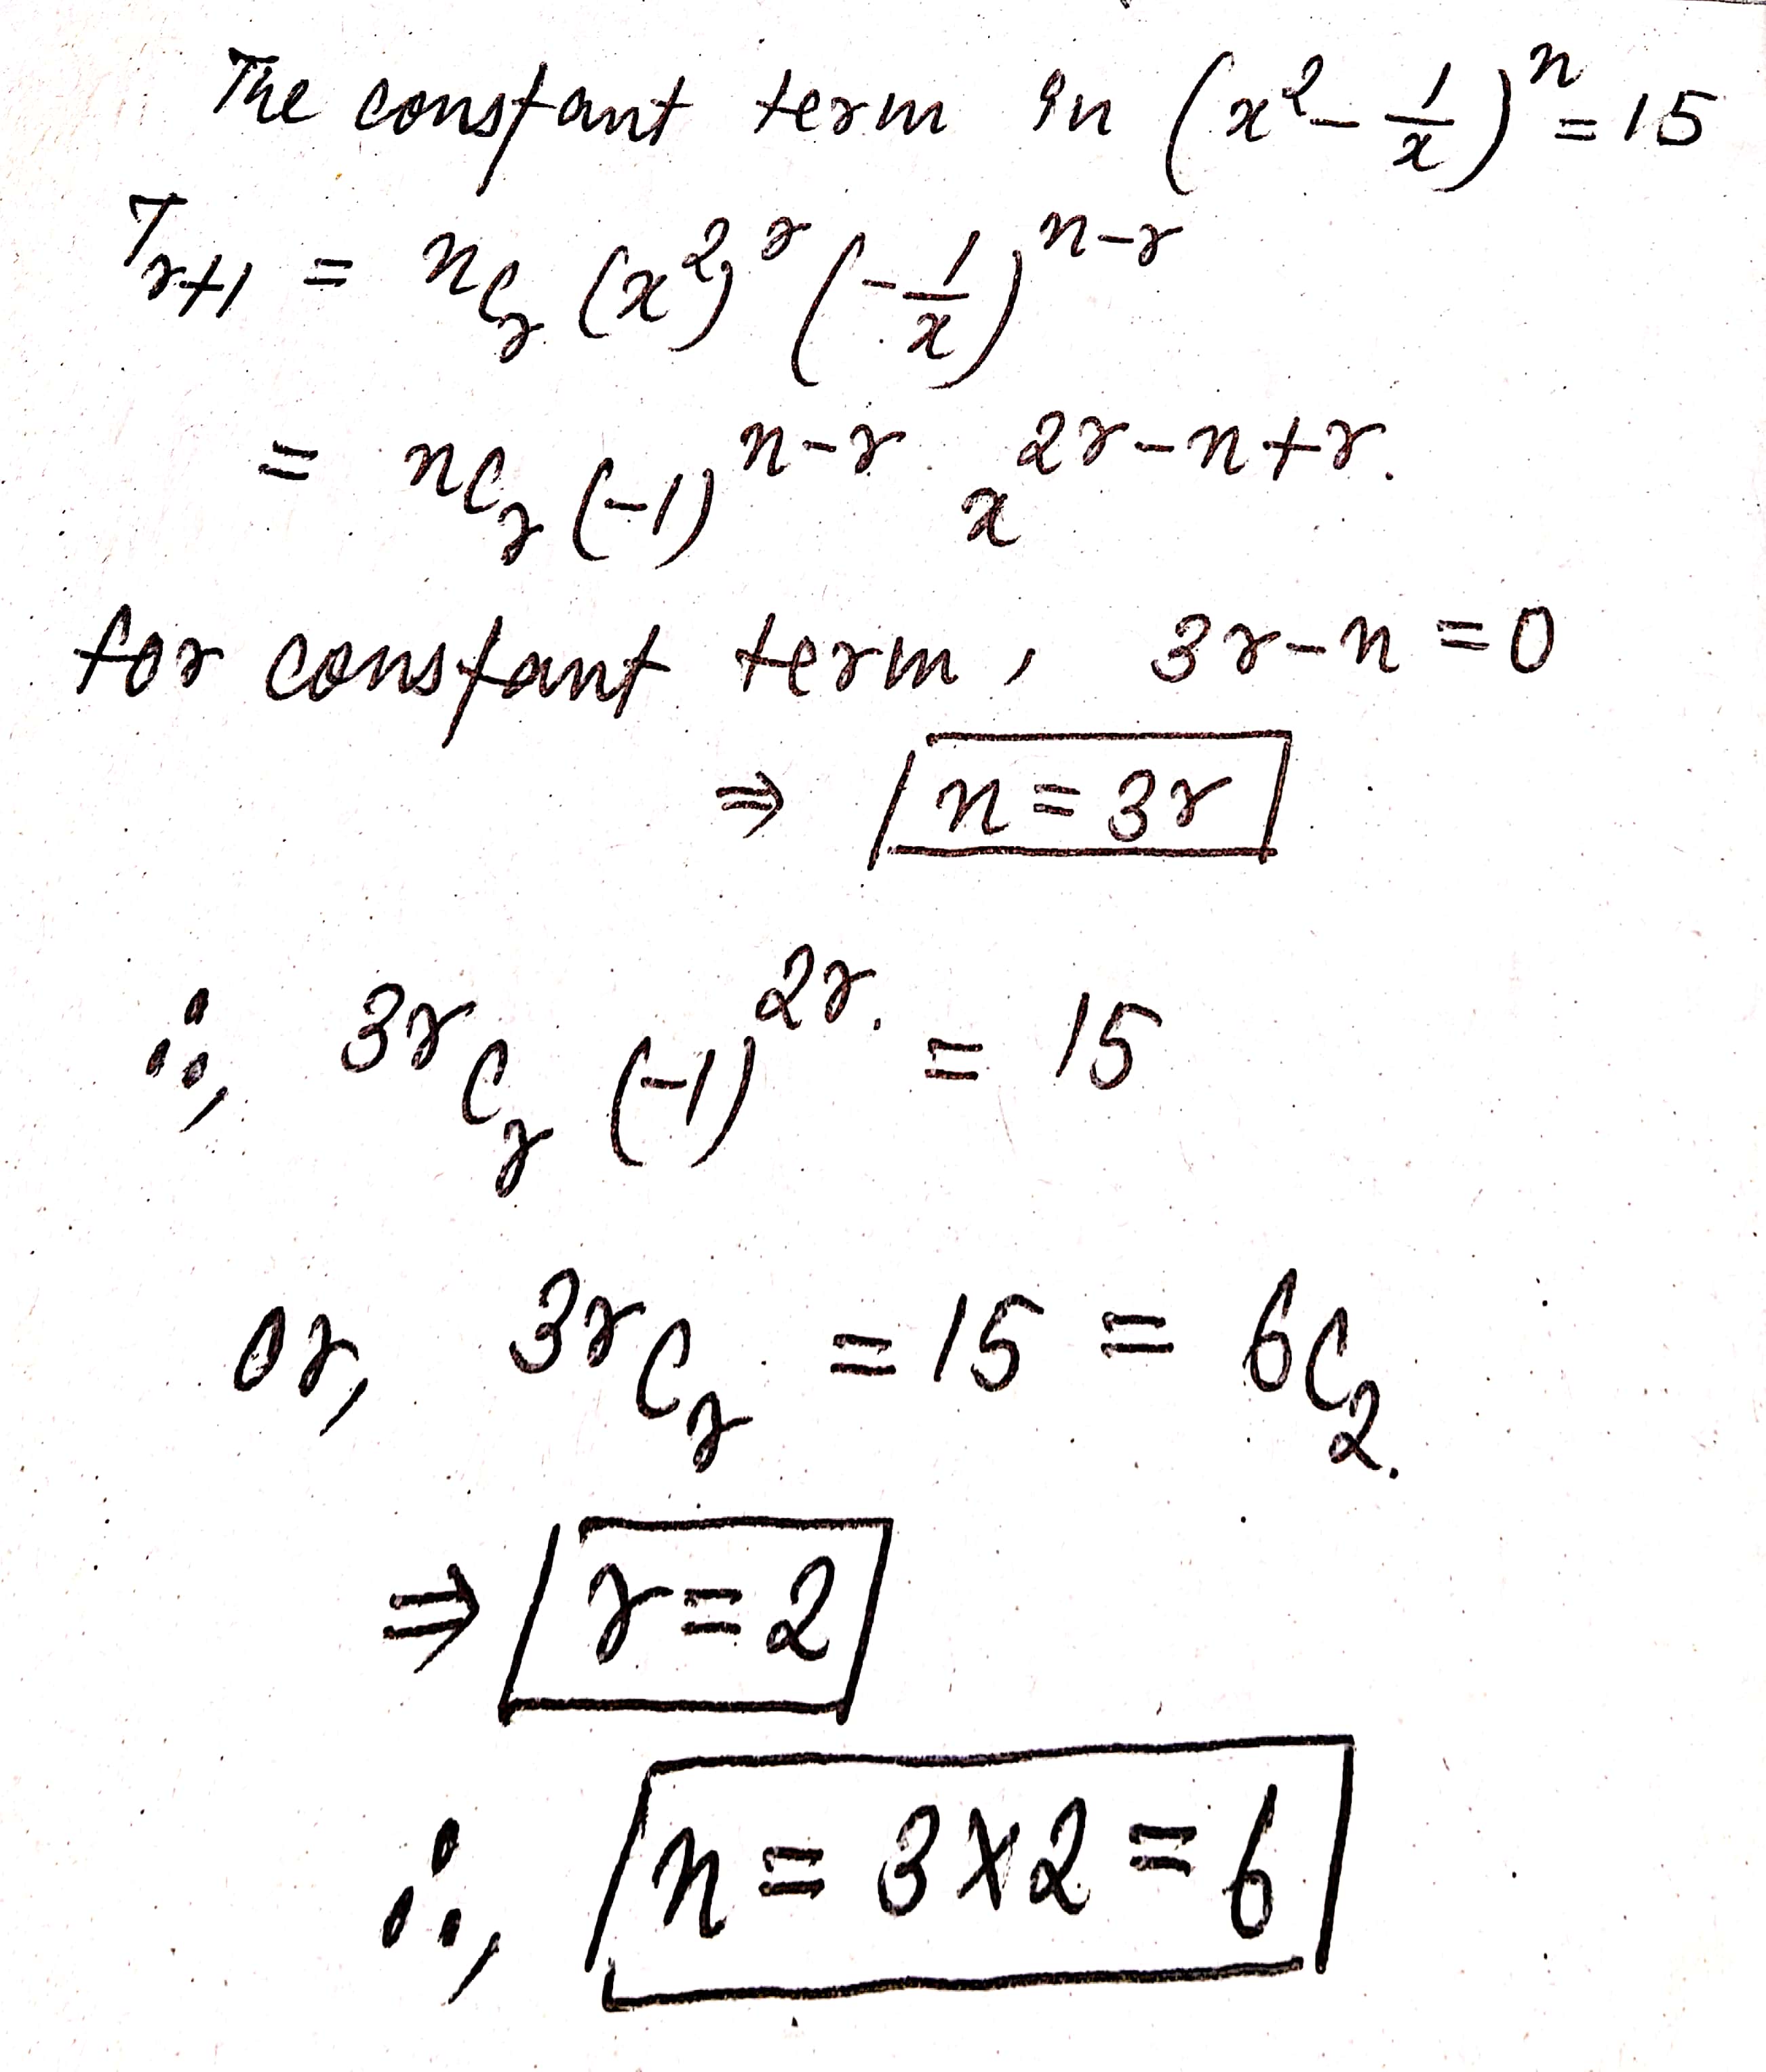 The constant term in (x² - 1/x)ⁿ = 15
T_{r+1} = nC_r (x²)^r (-1/x)^{n-r}
= nC_r (-1)^{n-r} x^{2r-n+r}.
for constant term, 3r-n = 0
⇒ n = 3r
∴, 3rC_r (-1)^{2r}. = 15
or, 3rC_r = 15 = 6C_2.
⇒ r = 2
∴, n = 3×2 = 6